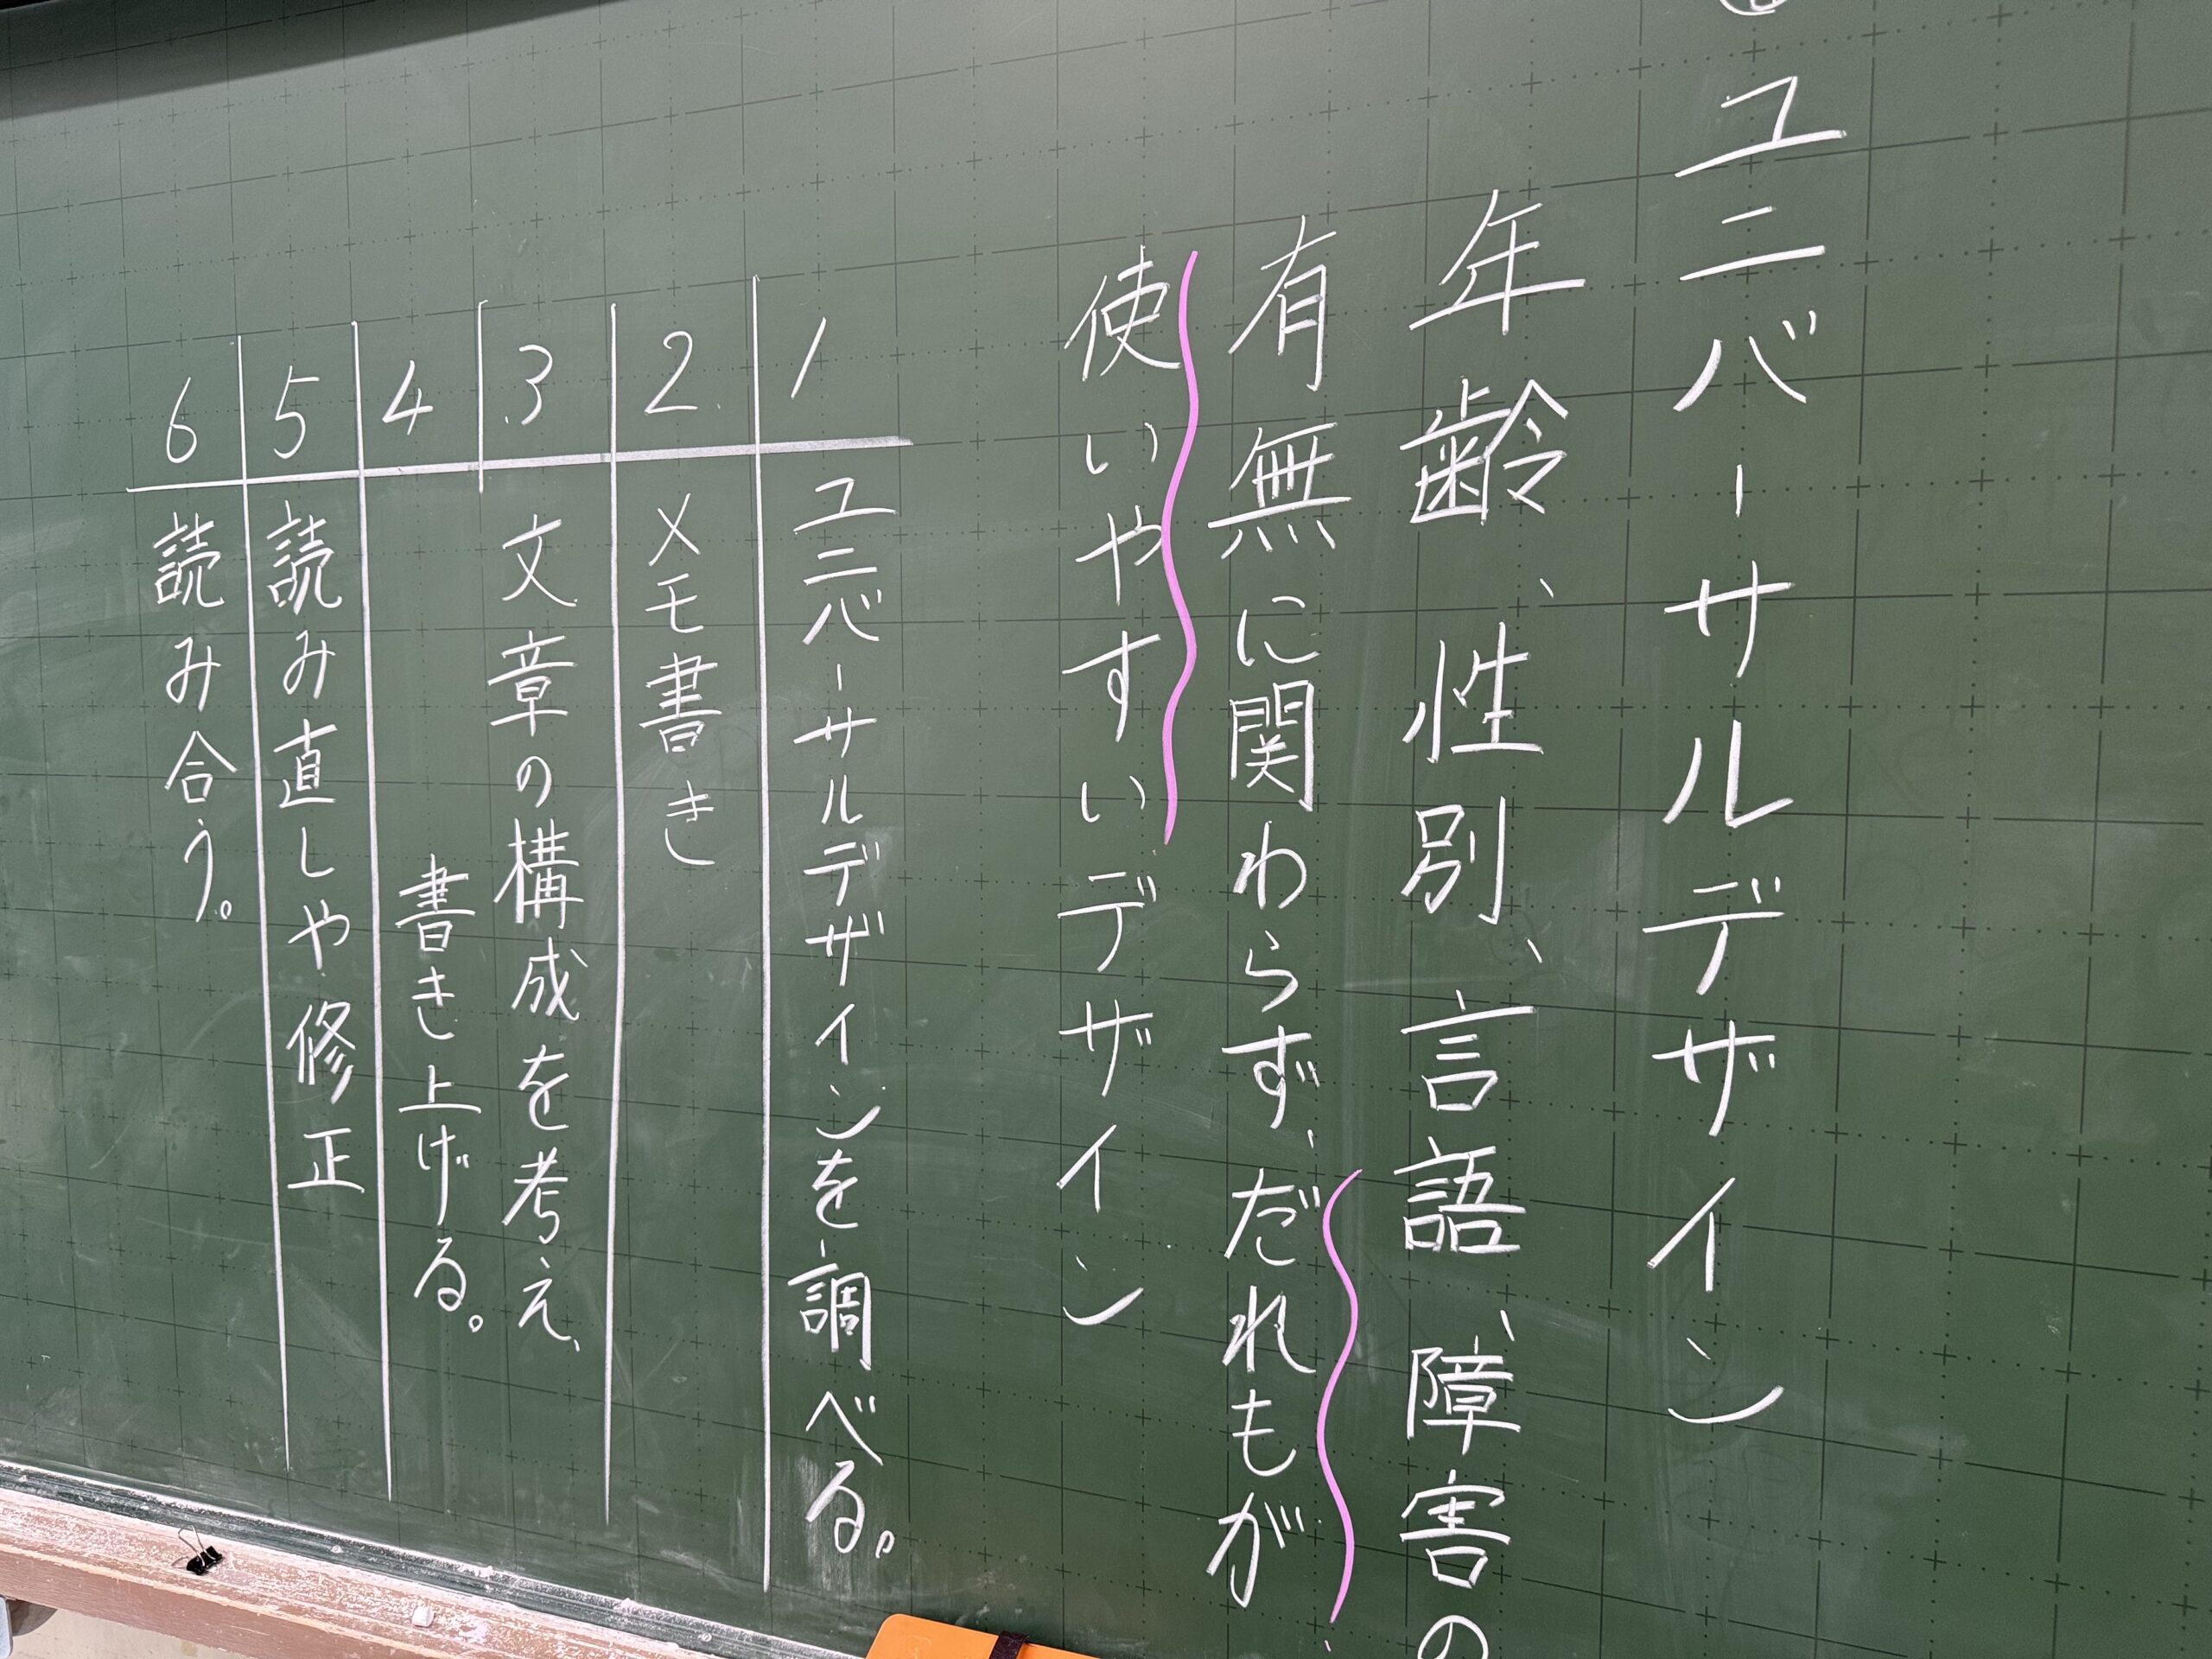 ユニバーサルデザイン
年齢、性別、言語、障害の
有無に関わらず、だれもが
使いやすいデザイン
1 ユニバーサルデザインを調べる。
2 メモ書き
3 文章の構成を考え、
4 書き上げる。
5 読み直しや修正
6 読み合う。